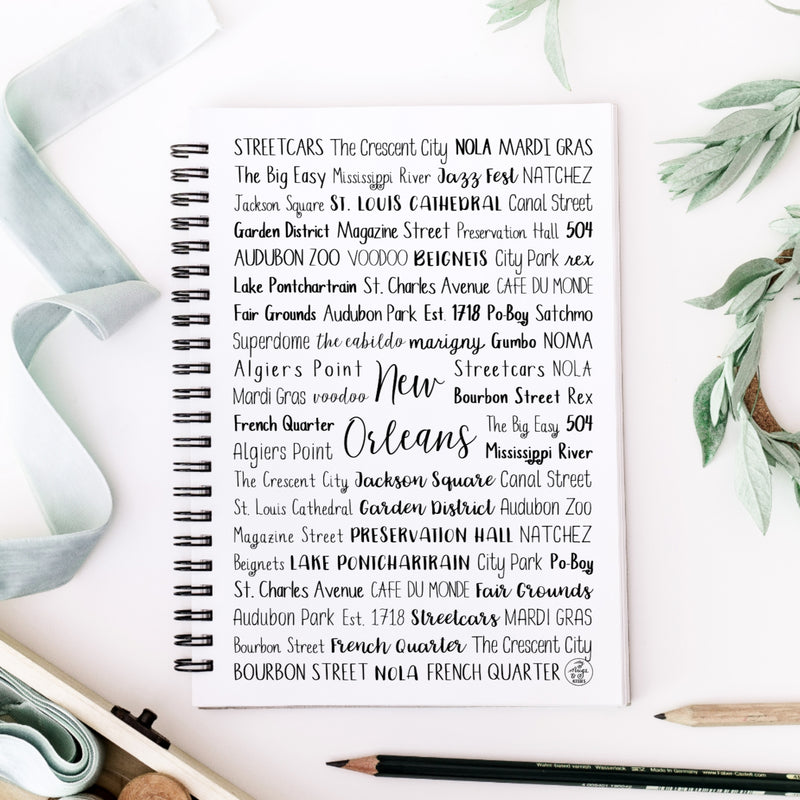 STREETCARS The Crescent City NOLA MARDI GRAS
The Big Easy Mississippi River Jazz Fest NATCHEZ
Jackson Square ST. LOUIS CATHEDRAL Canal Street
Garden District Magazine Street Preservation Hall 504
AUDUBON ZOO VOODOO BEIGNETS City Park rex
Lake Pontchartrain St. Charles Avenue CAFE DU MONDE
Fair Grounds Audubon Park Est. 1718 Po-Boy Satchmo
Superdome the cabildo marigny Gumbo NOMA
Algiers Point Streetcars NOLA
Mardi Gras voodoo New Bourbon Street Rex
French Quarter The Big Easy 504
Algiers Point Orleans Mississippi River
The Crescent City Jackson Square Canal Street
St. Louis Cathedral Garden District Audubon Zoo
Magazine Street PRESERVATION HALL NATCHEZ
Beignets LAKE PONTCHARTRAIN City Park Po-Boy
St. Charles Avenue CAFE DU MONDE Fair Grounds
Audubon Park Est. 1718 Streetcars MARDI GRAS
Bourbon Street French Quarter The Crescent City
BOURBON STREET NOLA FRENCH QUARTER
Made in Germany www.Faber-Castell.com